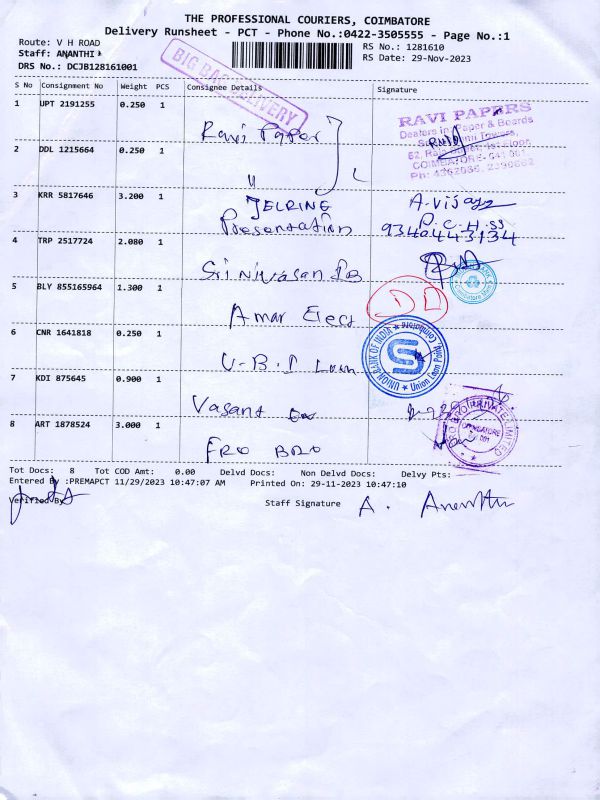 THE PROFESSIONAL COURIERS, COIMBATORE
Delivery Runsheet - PCT - Phone No.:0422-3505555 - Page No.:1
Route: V H ROAD
RS No.: 1281610
Staff: ANANTHI
RS Date: 29-Nov-2023
DRS No.: DCJB128161001
BIG BAG DELIVERY
S No Consignment No Weight PCS Consignee Details Signature
1 UPT 2191255 0.250 1
Ravi Paper
RAVI PAPERS
Dealers in Paper & Boards
2 DDL 1215664 0.250 1
3 KRR 5817646 3.200 1
Presentation
4 TRP 2517724 2.080 1
Srinivasan
5 BLY 855165964 1.300 1
Amar Elect
D D
6 CNR 1641818 0.250 1
U.B.I Loan
UNION BANK OF INDIA
Union Loan Point, Coimbatore
7 KDI 875645 0.900 1
Vasant
8 ART 1878524 3.000 1
FRO BRO
COIMBATORE
Tot Docs: 8 Tot COD Amt: 0.00 Delvd Docs: Non Delvd Docs: Delvy Pts:
Entered By :PREMAPCT 11/29/2023 10:47:07 AM Printed On: 29-11-2023 10:47:10
Verified By
Staff Signature